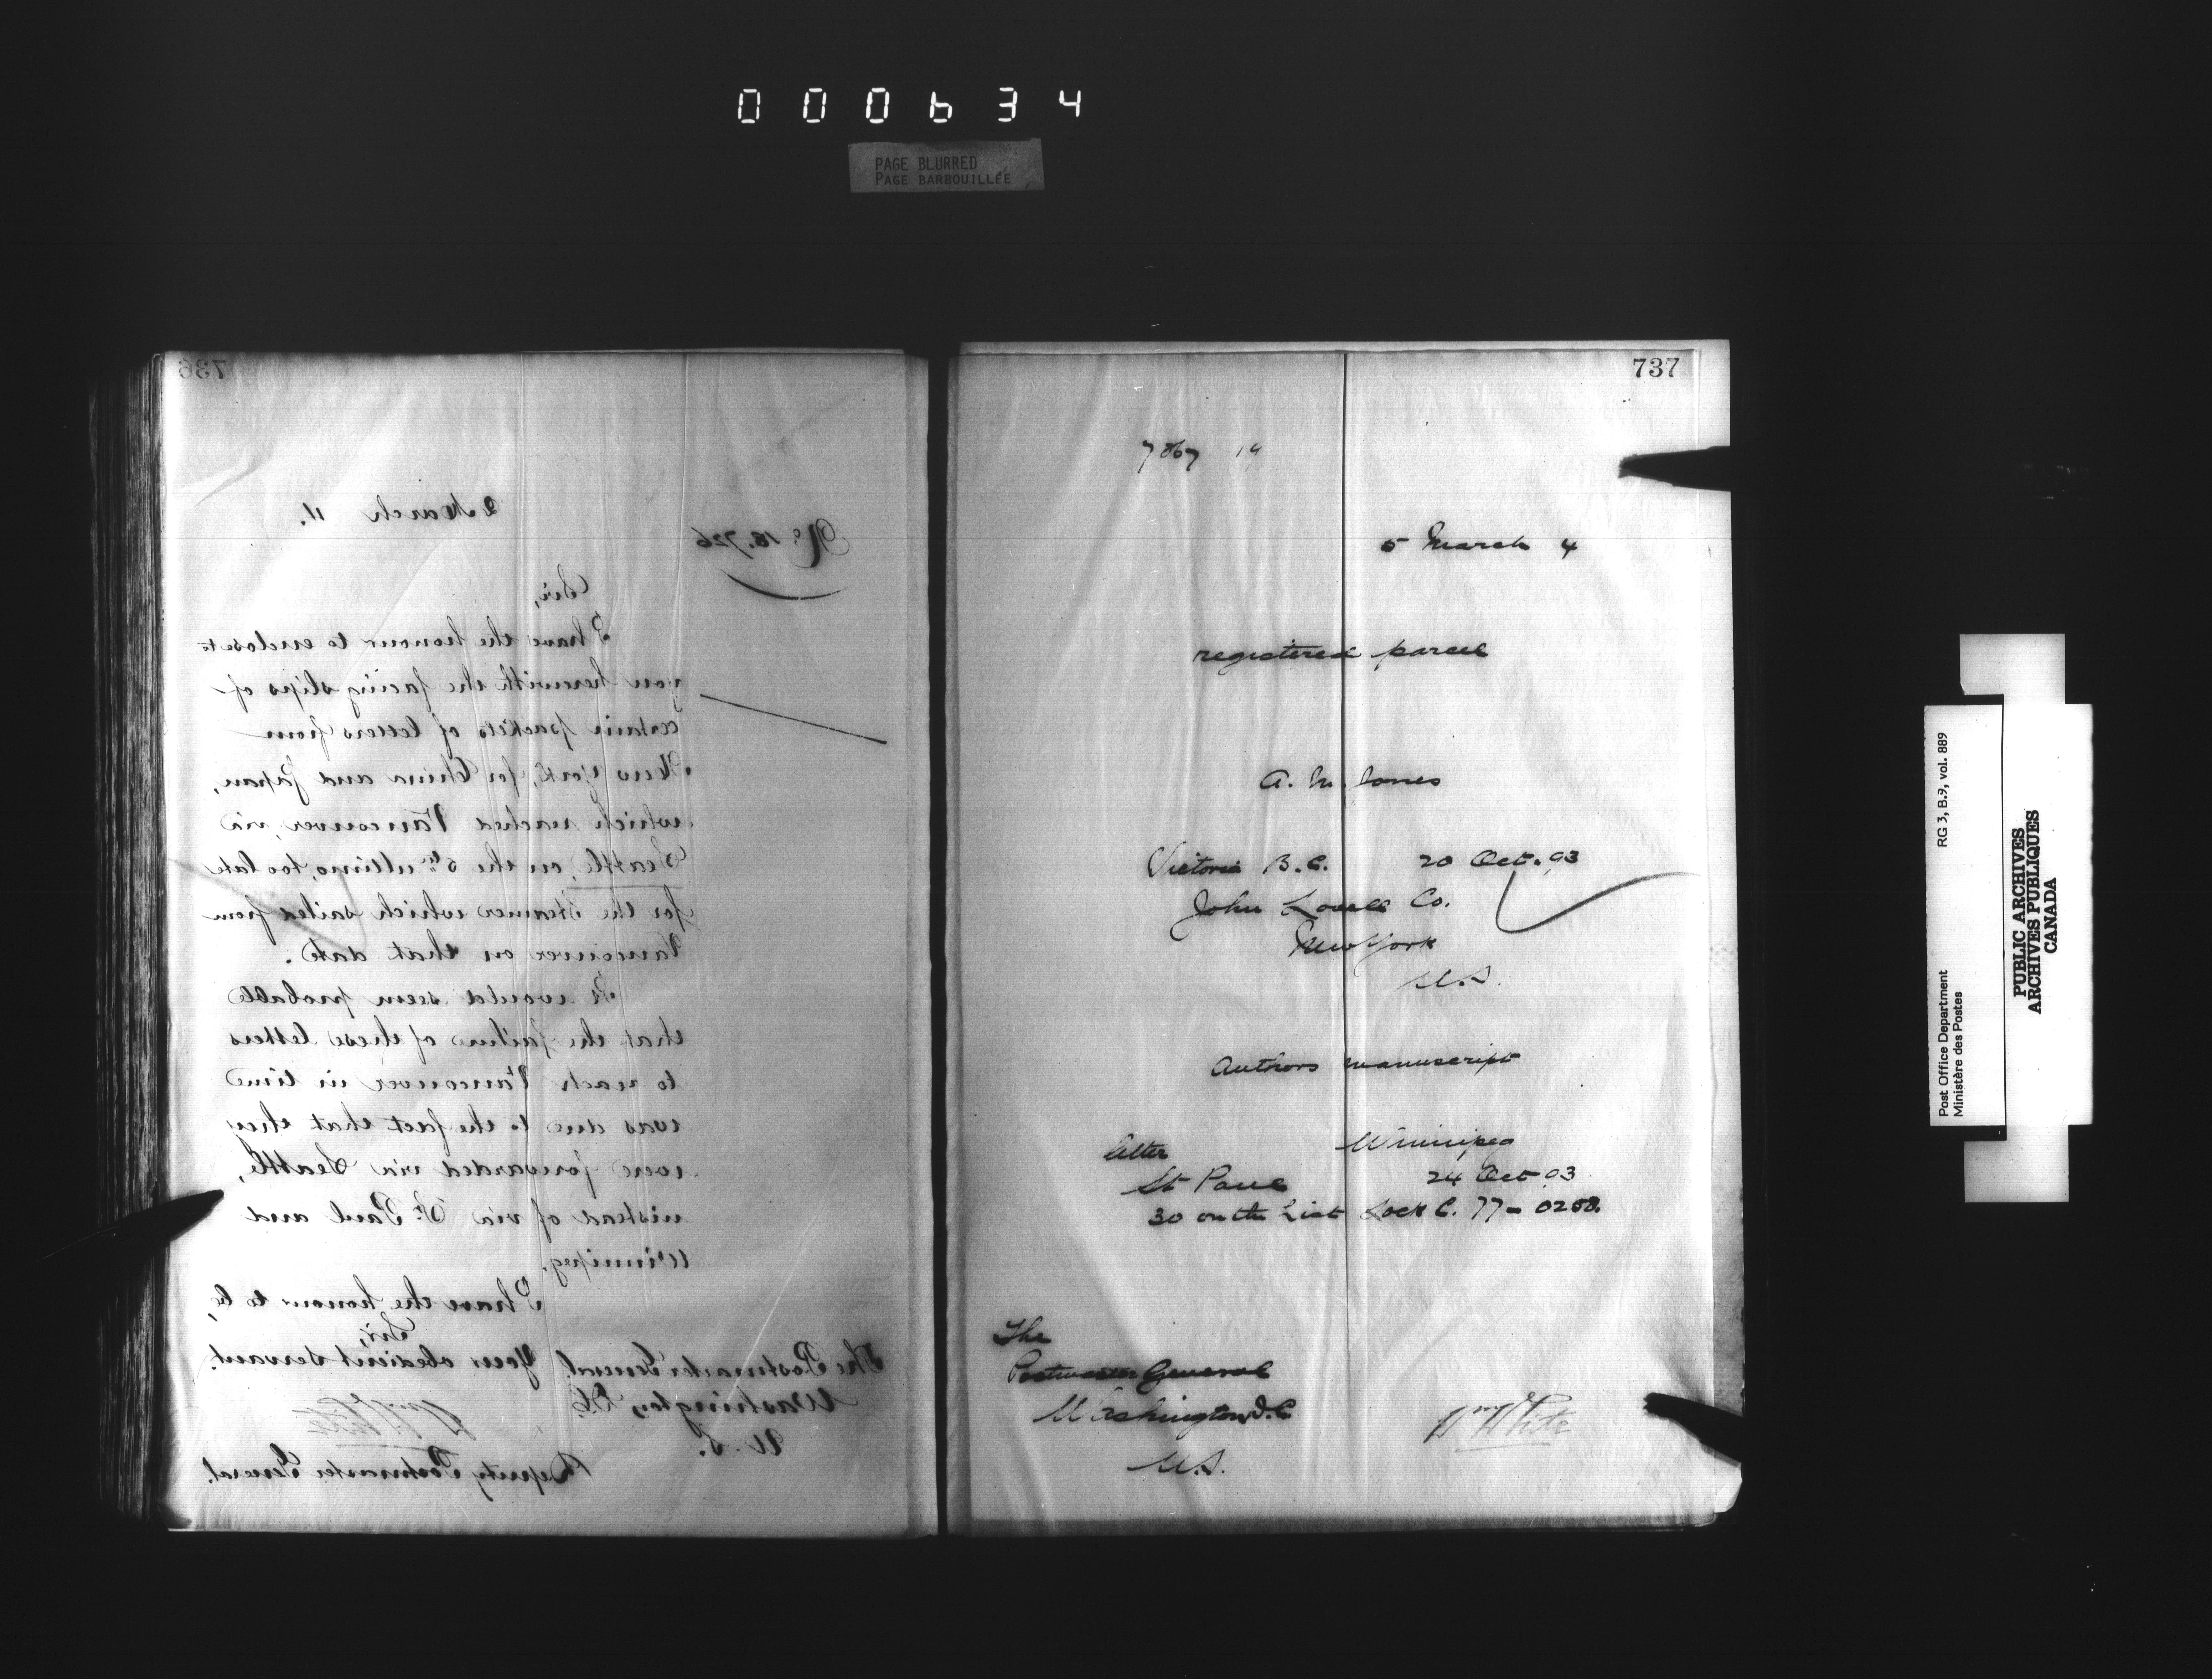 000634
PAGE BLURRED
PAGE BARBOUILLÉE
736
2 March 4.
No. 18.726
Sir,
I have the honour to enclose to
you herewith the facing slips of
certain packets of letters from
New York, for China and Japan,
which reached Vancouver, via
Seattle, on the 5th ultimo, too late
for the steamer which sailed from
Vancouver on that date.
It would seem probable
that the failure of these letters
to reach Vancouver in time
was due to the fact that they
were forwarded via Seattle,
instead of via St. Paul and
Winnipeg.
I have the honour to be,
Sir,
Your obedient servant.
Wm White
Deputy Postmaster General.
The Postmaster General
Washington, D.C.
U.S.
737
5 March 4
registered parcel
Victoria B.C. 20 Oct. 93
John Lovell Co.
New York
U.S.
Authors manuscript
letter Winnipeg
St Paul 24 Oct 93
30 on the List Lock C. 77-0258.
The
Postmaster General
Washington D.C
U.S.
Wm White
RG 3, B.9, vol. 889
Post Office Department
Ministère des Postes
PUBLIC ARCHIVES
ARCHIVES PUBLIQUES
CANADA